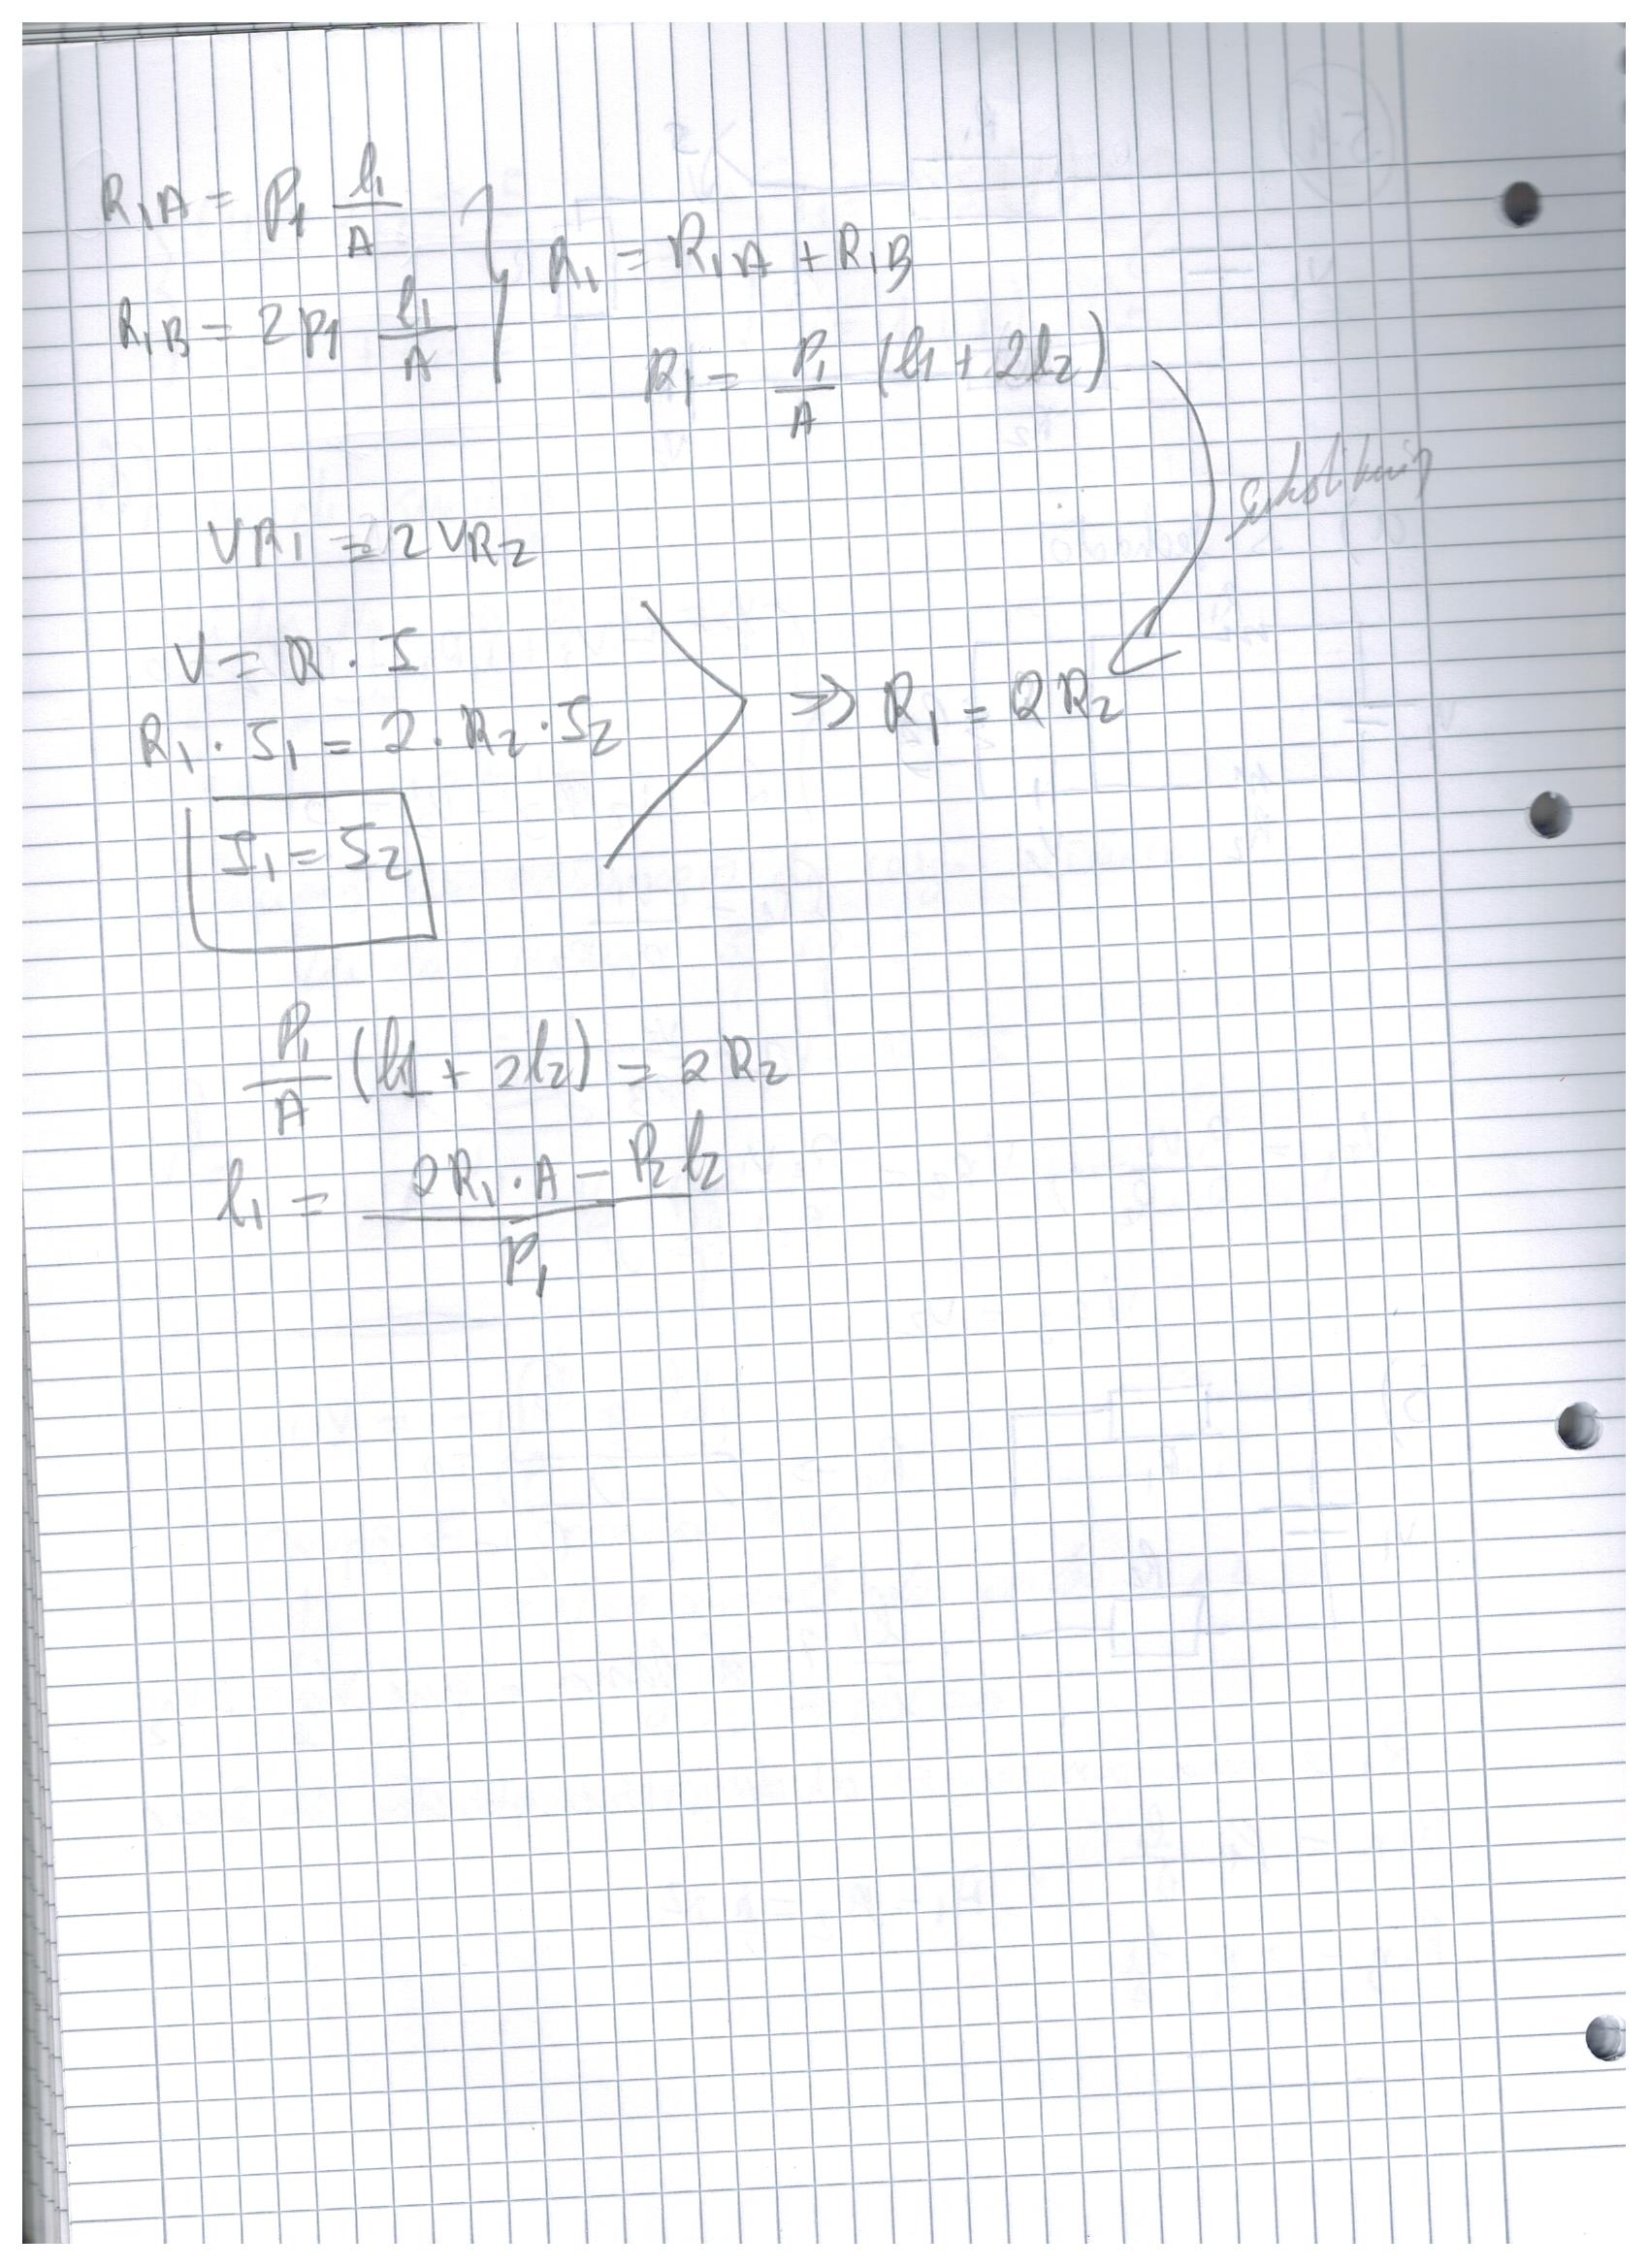 R1A = P1 l1/A
R1B = 2P1 l1/A
R1 = R1A + R1B
R1 = P1/A (l1 + 2l2)
VR1 = 2VR2
V = R · I
R1 · I1 = 2 · R2 · I2
I1 = I2
⇒ R1 = 2R2
P1/A (l1 + 2l2) = 2R2
l1 = (2R1 · A - P2 l2)/P1